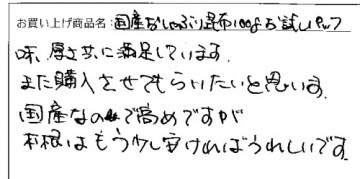 お買い上げ商品名：国産おしゃぶり昆布100gお試しパック
味、厚さ共に満足しています。
また購入させてもらいたいと思います。
国産なので高めですが
もう少し安ければうれしいです。